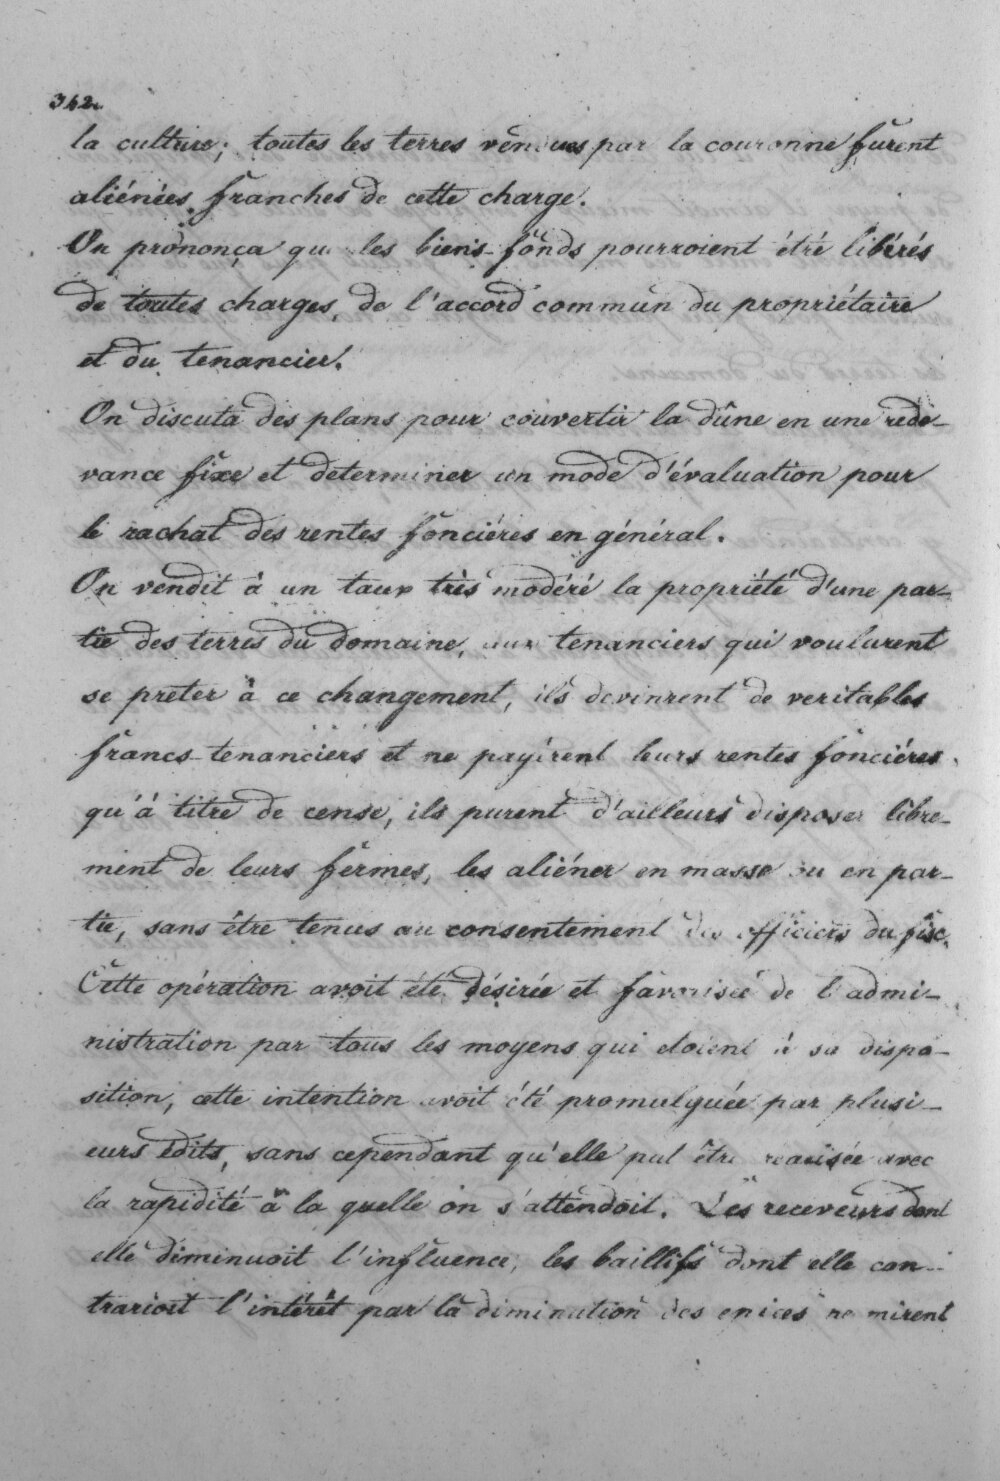 342.
la culture; toutes les terres vendues par la couronne furent
aliénées franches de cette charge.
On prononça que les biens-fonds pourroient étré libérés
de toutes charges, de l'accord commun du propriétaire
et du tenancier.
On discuta des plans pour couvertir la dûne en une rede-
vance fixe et determiner un mode d'évaluation pour
le rachat des rentes fonciéres en général.
On vendit à un taux très modéré la propriété d'une par-
tie des terres du domaine, aux tenanciers qui voulurent
se preter à ce changement, ils devinrent de veritables
francs-tenanciers et ne payèrent leurs rentes fonciéres
qu'à titre de cense, ils purent d'ailleurs disposer libre-
ment de leurs fermes, les aliéner en masse ou en par-
tie, sans être tenus au consentement des officiers du fisc.
Cette opération avoit été désirée et favorisée de l'admi-
nistration par tous les moyens qui etoient à sa dispo-
sition, cette intention avoit été promulguée par plusi-
eurs édits, sans cependant qu'elle put être réalisée avec
la rapidité à la quelle on s'attendoit. Les receveurs dont
elle diminuoit l'influence, les baillifs dont elle con-
trarioit l'intérêt par la diminution des epices ne mirent